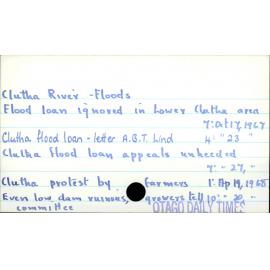 Clutha River - Floods
Flood loan ignored in Lower Clutha area
7: Oct 17, 1967
Clutha flood loan - letter A.G.T. Lind 4: " 23 "
Clutha flood loan appeals unheeded
7: " 27, "
Clutha protest by farmers 1: Ap 19, 1968
Even low dam ruinous, growers tell 10: " 20, "
committee
OTAGO DAILY TIMES